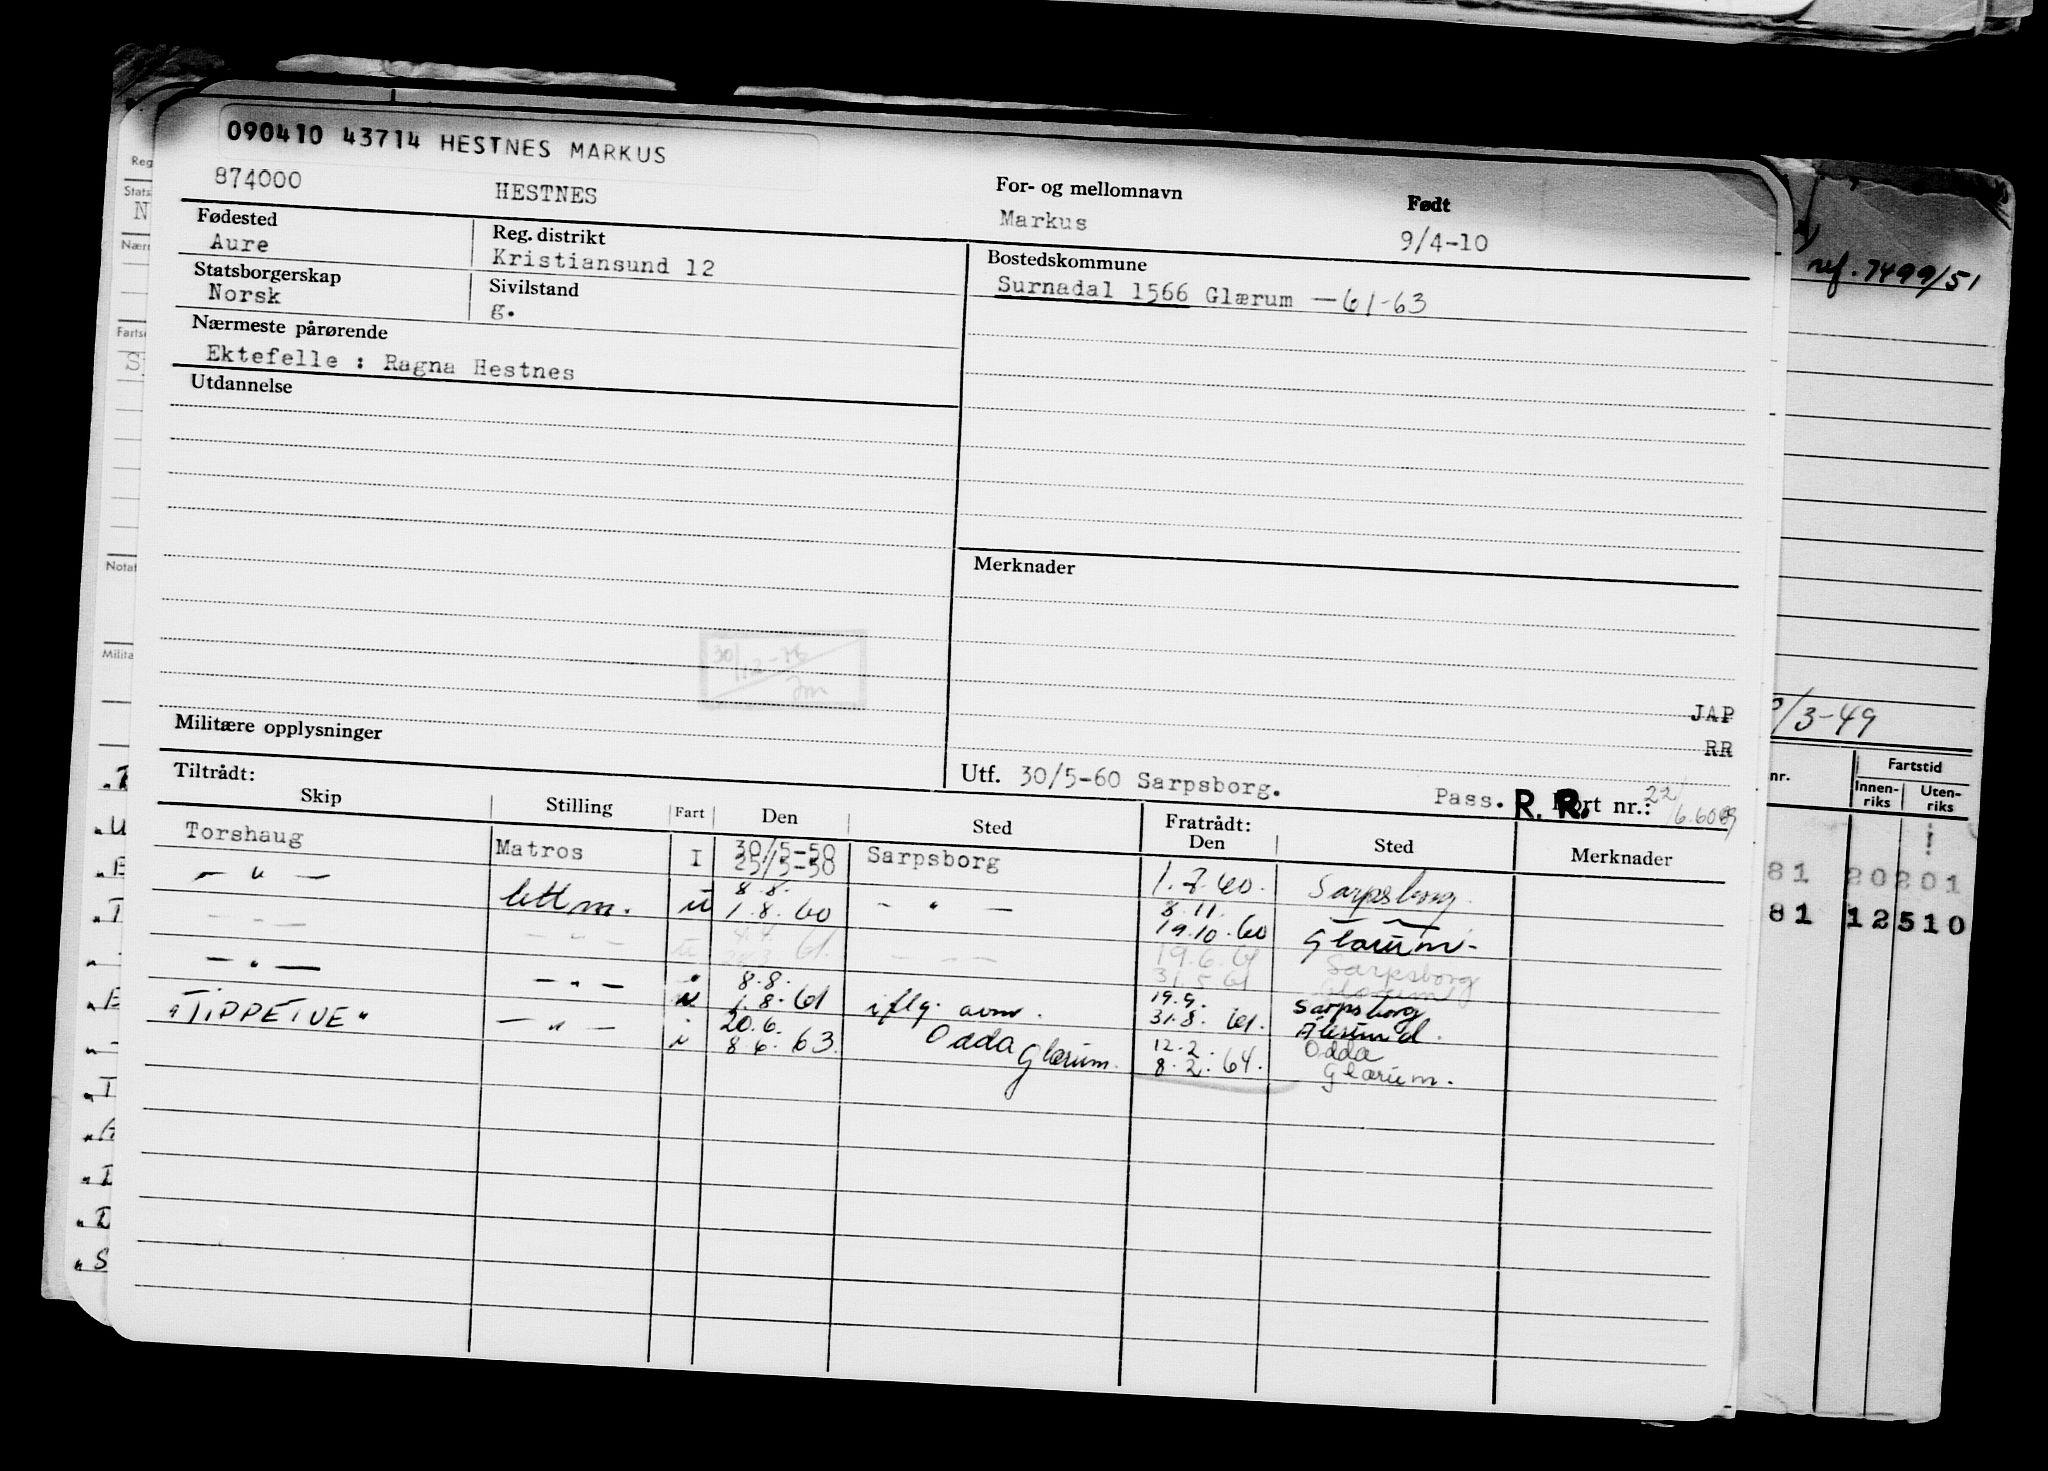 090410 43714 HESTNES MARKUS
874000 HESTNES For- og mellomnavn Markus Født 9/4-10
Fødested Aure Reg. distrikt Kristiansund 12 Bostedskommune
Statsborgerskap Norsk Sivilstand g. Surnadal 1566 Glærum — 61-63
Nærmeste pårørende
Ektefelle : Ragna Hestnes
Utdannelse
Merknader
30/12-75
JAP
RR
Militære opplysninger
Utf. 30/5-60 Sarpsborg. Pass. R. R. Kort nr.: 22/6.60
Tiltrådt: Fratrådt:
Skip Stilling Fart Den Sted Den Sted Merknader
Torshaug Matros I 30/5-50 Sarpsborg 1.7.60. Sarpsborg.
25/5-50
— " — lettm. u 8.8. — " — 8.11.
1.8.60 19.10.60 Glærum -
— " — — " — 4.4. 61. — " — 19.6.61 Sarpsborg
31.5.61 Glærum
— " — — " — 8.8. iflg. avm. 19.9. Sarpsborg
1.8.61 31.8.61. Ålesund.
"TIPPETUE" — " — i 20.6. Odda 12.2. Odda
8.6.63. Glærum. 8.2.64. Glærum.
Reg
Stats
N
Nærr
Fartsc
S
Notat
Milita
ref. 7499/51
/3-49
nr. Fartstid
Innen-riks Uten-riks
81 20201
81 12510